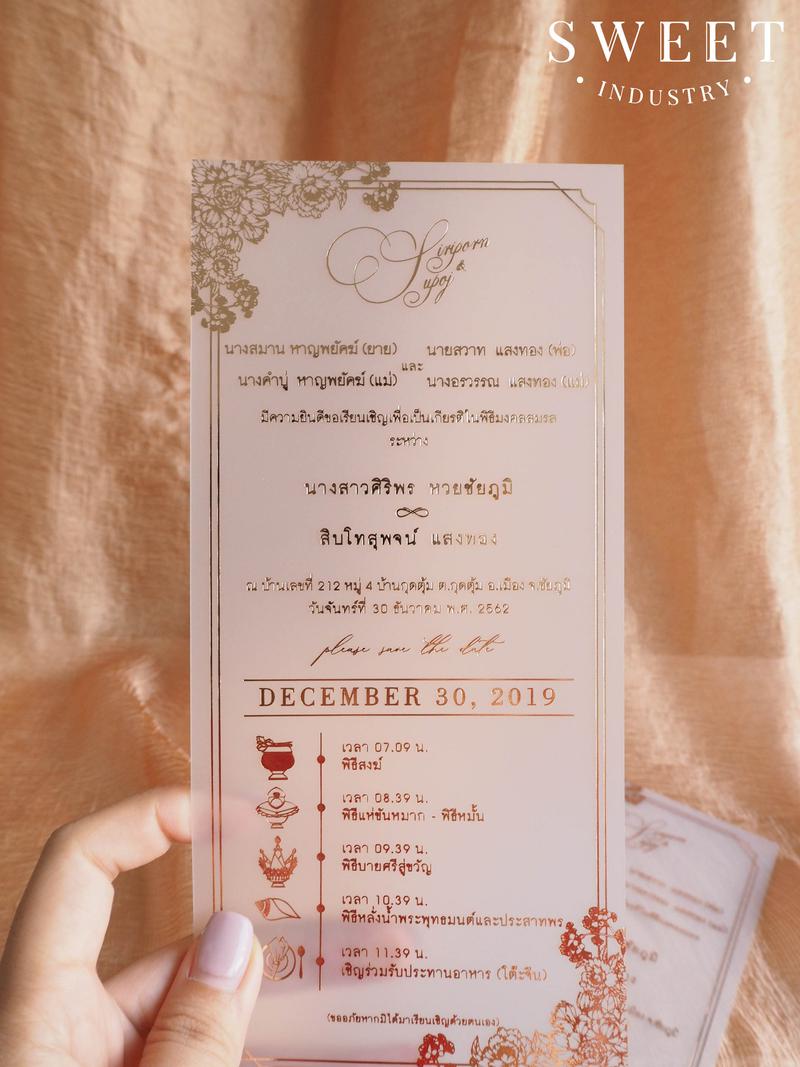 SWEET
INDUSTRY
Siriporn
&
Supoj
นางสมาน หาญพยัคฆ์ (ยาย) นายสวาท แสงทอง (พ่อ)
และ
นางคำบู่ หาญพยัคฆ์ (แม่) นางอรวรรณ แสงทอง (แม่)
มีความยินดีขอเรียนเชิญเพื่อเป็นเกียรติในพิธีมงคลสมรส
ระหว่าง
นางสาวศิริพร หวยชัยภูมิ
สิบโทสุพจน์ แสงทอง
ณ บ้านเลขที่ 212 หมู่ 4 บ้านกุดตุ้ม ต.กุดตุ้ม อ.เมือง จ.ชัยภูมิ
วันจันทร์ที่ 30 ธันวาคม พ.ศ. 2562
please save the date
DECEMBER 30, 2019
เวลา 07.09 น.
พิธีสงฆ์
เวลา 08.39 น.
พิธีแห่ขันหมาก - พิธีหมั้น
เวลา 09.39 น.
พิธีบายศรีสู่ขวัญ
เวลา 10.39 น.
พิธีหลั่งน้ำพระพุทธมนต์และประสาทพร
เวลา 11.39 น.
เชิญร่วมรับประทานอาหาร (โต๊ะจีน)
(ขออภัยหากมิได้มาเรียนเชิญด้วยตนเอง)